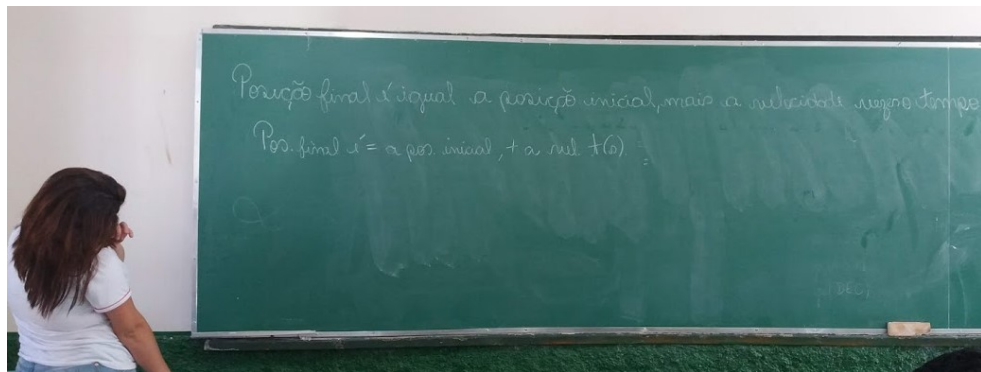 Posição final é igual a posição inicial, mais a velocidade vezes o tempo
Pos. final é = a pos. inicial, + a vel t(s).